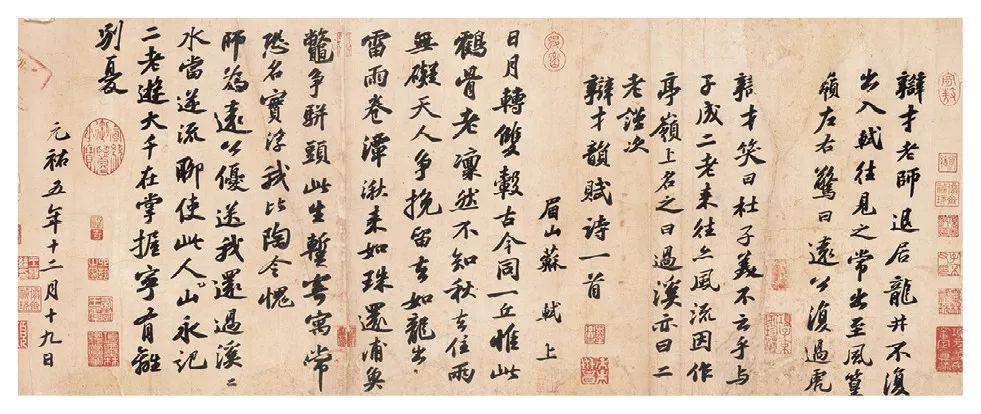 辯才老師退居龍井不復
出入軾往見之常出至風篁
嶺左右驚曰遠公復過虎
辯才笑曰杜子美不云乎與
子成二老来往亦風流因作
亭嶺上名之曰過溪亦曰二
老謹次
辯才韻賦詩一首
眉山蘇軾上
日月轉雙轂古今同一丘惟此
鶴骨老凜然不知秋去住兩
無礙天人爭挽留去如龍出
雷雨卷潭湫来如珠還浦魚
鼈爭駢頭此生暫寄寓常
恐名實浮我比陶令愧
師為遠公優送我還過溪〻
水當逆流聊使此人山永記
二老遊大千在掌握寧有離
別憂
元祐五年十二月十九日